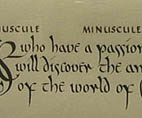 NUSCULE MINUSCULE
who have a passion
will discover the an
of the world of